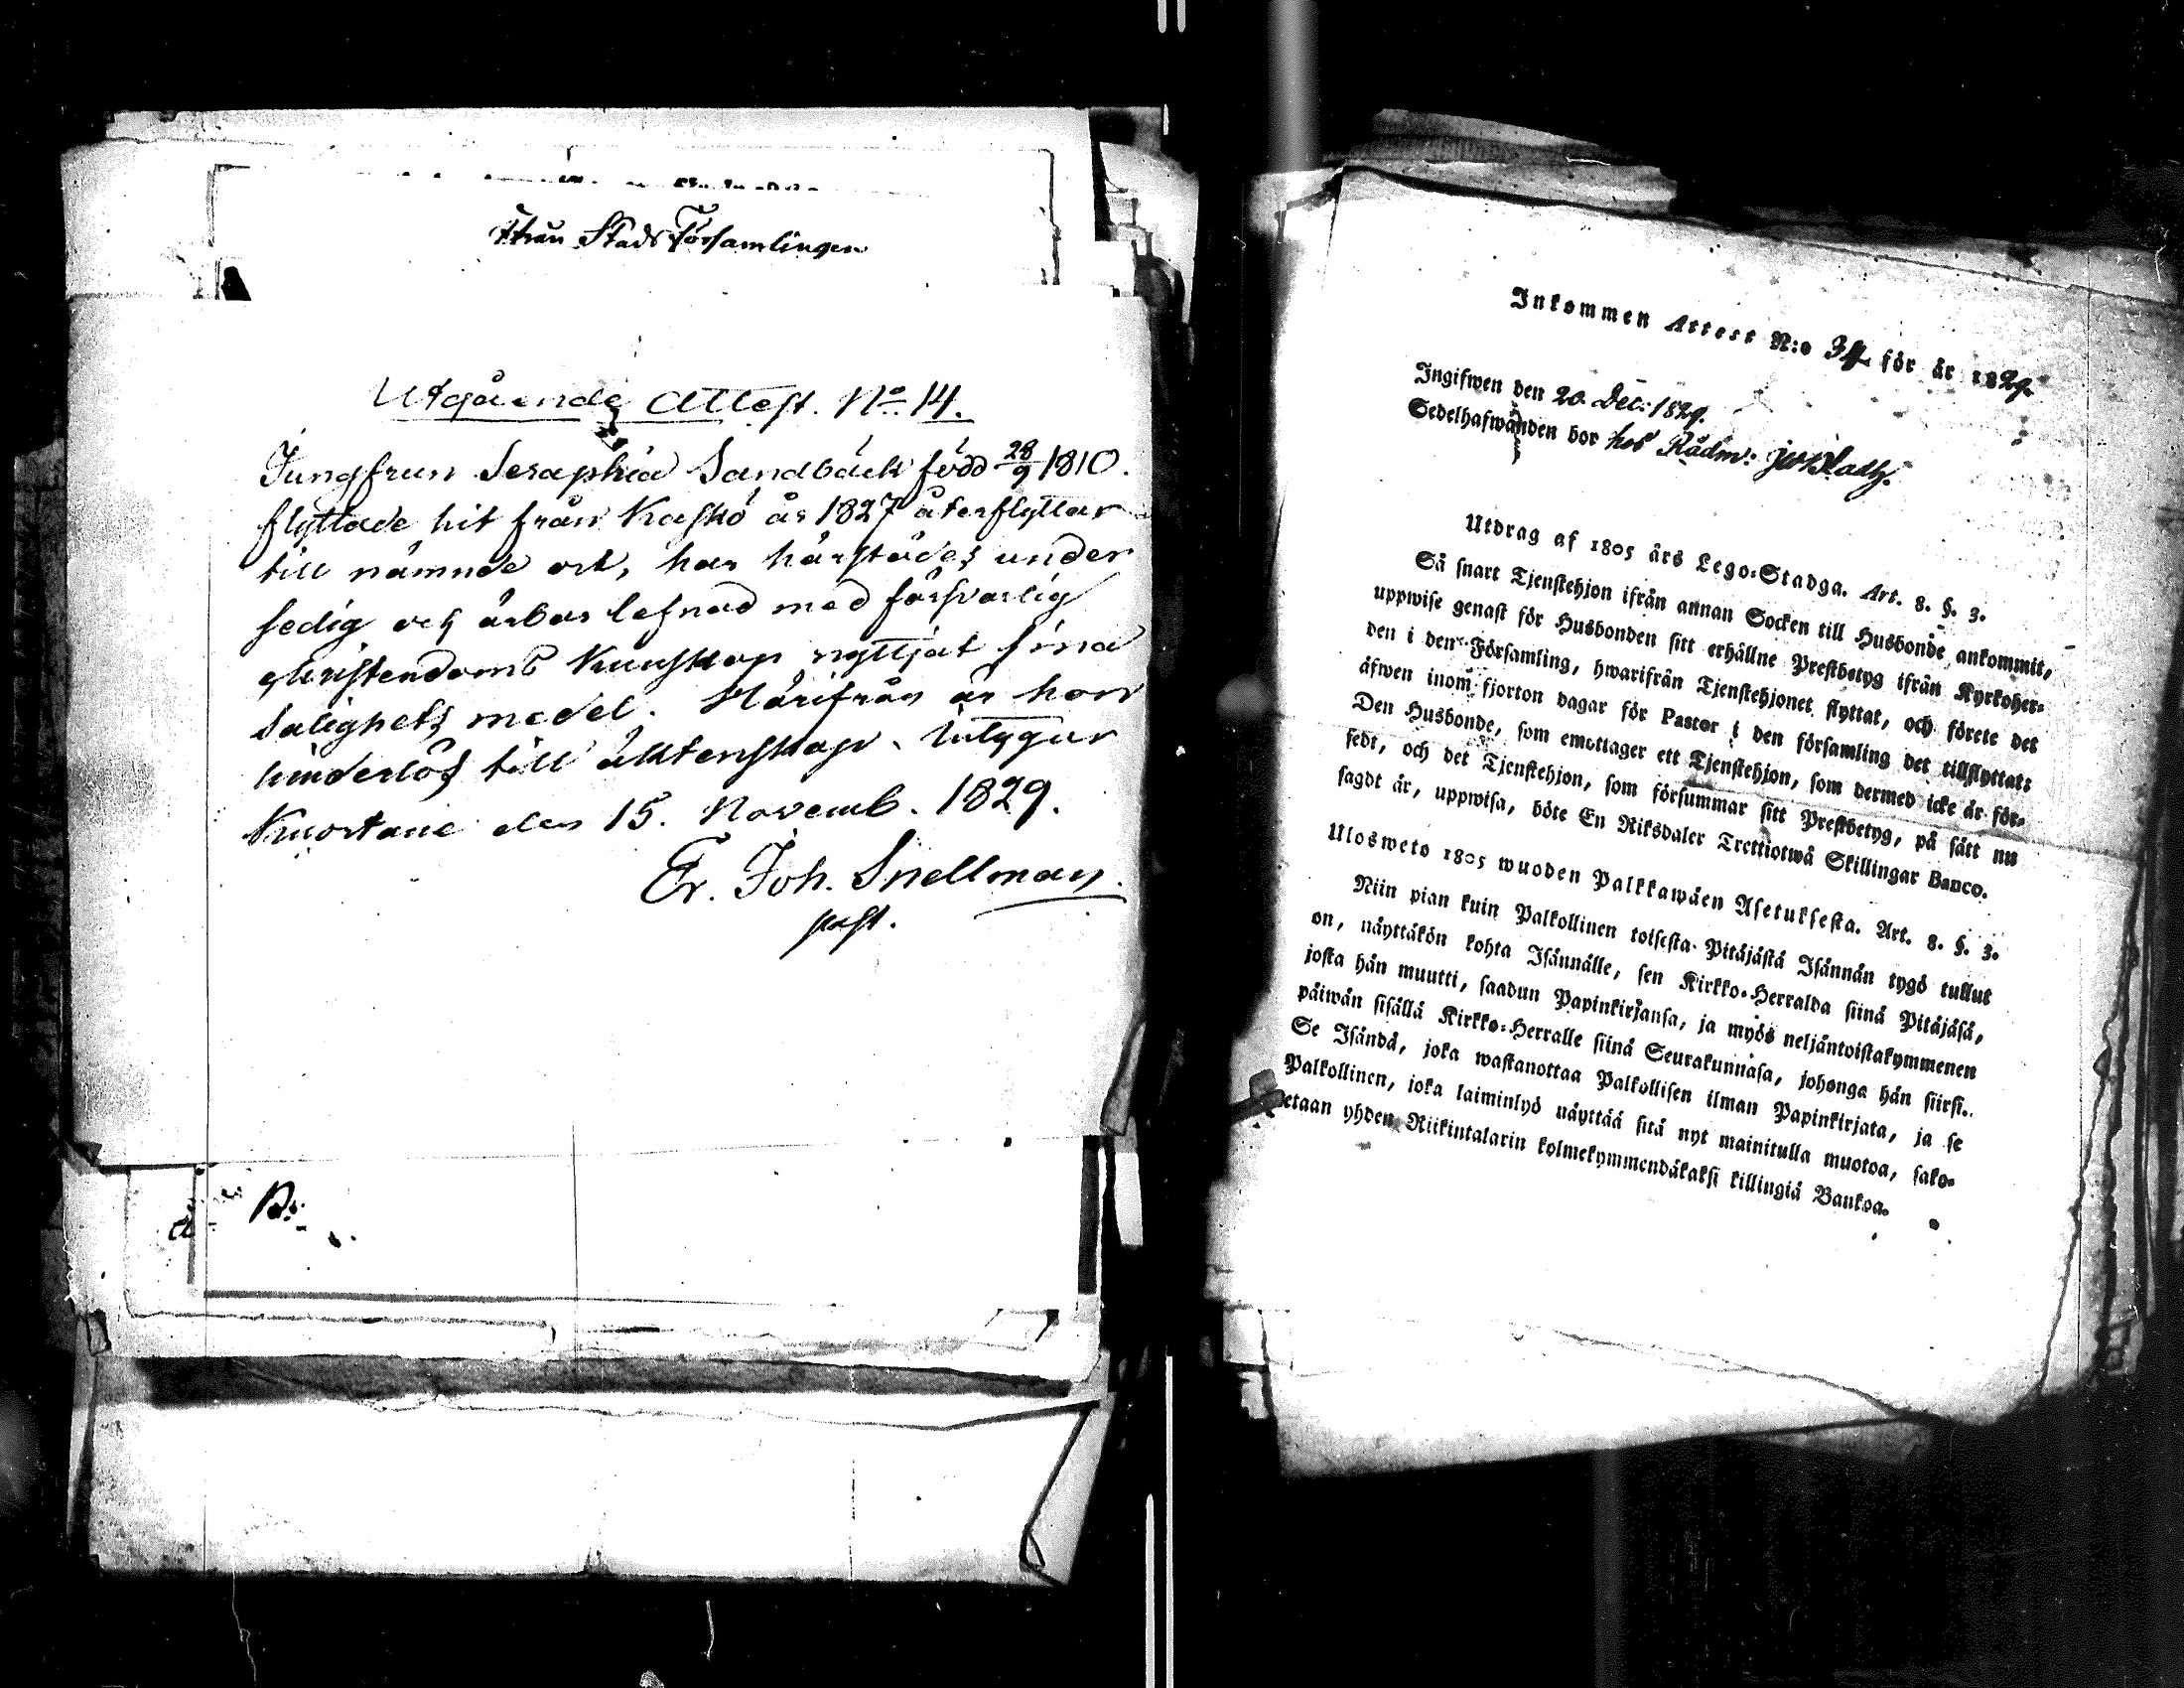 ifrån Stads Församlingen
Utgående Attest. No 14.
Jungfrun Seraphia Sandbäck född 28/9 1810.
flyttade hit från Kaskö år 1827 återflyttar
till nämnde ort, har härstädes under
sedig och ärbar lefnad med försvarlig
christendoms kunskap nyttjat sina
salighets medel. Härifrån är hon
hinderlös till äktenskap, intygar
Kuortane den 15. Novemb. 1829.
Er. Joh. Snellman
past.
Inkommen Attest N:o 34 för år 1829.
Ingifwen den 20 Dec: 1829.
Sedelhafwanden bor hos Rådm:
Utdrag af 1805 års Lego-Stadga. Art. 8. §. 3.
Så snart Tjenstehjon ifrån annan Socken till Husbonde ankommit,
uppwise genast för Husbonden sitt erhållne Prestbetyg ifrån Kyrkoher-
den i den Församling, hwarifrån Tjenstehjonet flyttat, och förete det
äfwen inom fjorton dagar för Pastor i den församling det tillflyttat:
Den Husbonde, som emottager ett Tjenstehjon, som dermed icke är för-
sedt, och det Tjenstehjon, som försummar sitt Prestbetyg, på sätt nu
sagdt är, uppwisa, böte En Riksdaler Trettiotwå Skillingar Banco.
Ulosweto 1805 wuoden Palkkawäen Asetuksesta. Art. 8. §. 3.
Niin pian kuin Palkollinen toisesta Pitäjästä Isännän tygö tullut
on, näyttäkön kohta Isännälle, sen Kirkko-Herralda siinä Pitäjäsä,
josta hän muutti, saadun Papinkirjansa, ja myös neljäntoistakymmenen
päiwän sisällä Kirkko-Herralle siinä Seurakunnasa, johonga hän siirsi.
Se Isändä, joka wastanottaa Palkollisen ilman Papinkirjata, ja se
Palkollinen, joka laiminlyö näyttää sitä nyt mainitulla muotoa, sako-
etaan yhden Riikintalarin kolmekymmendäkaksi killingiä Bankoa.